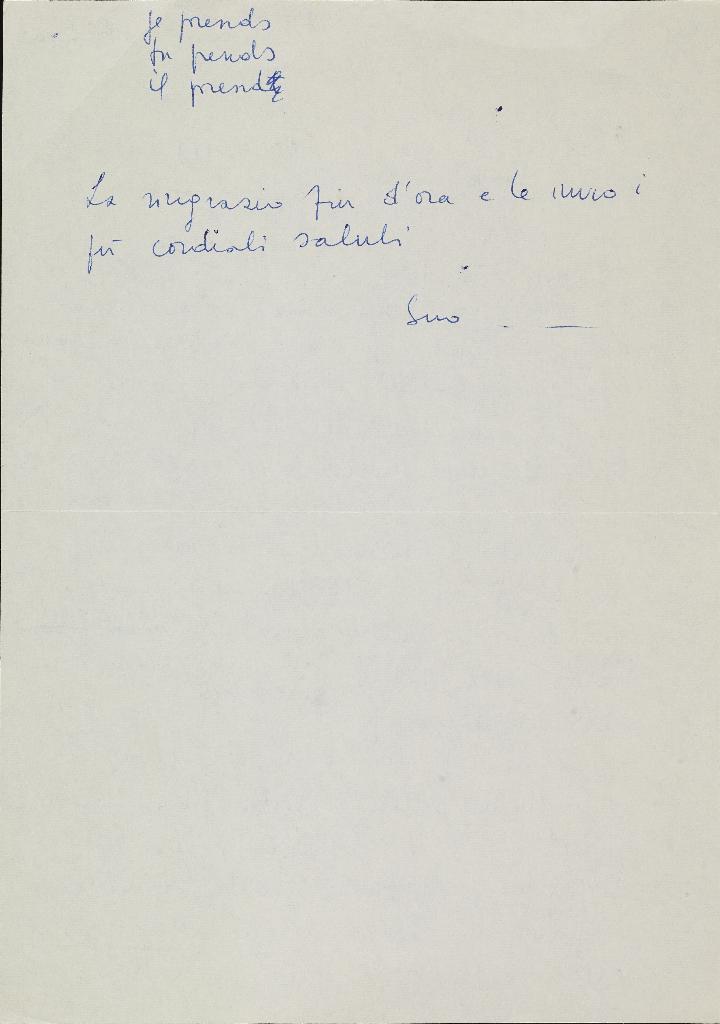 je prends
tu pends
il prend
La ringrazio fin d'ora e le invio i
più cordiali saluti
Suo . —